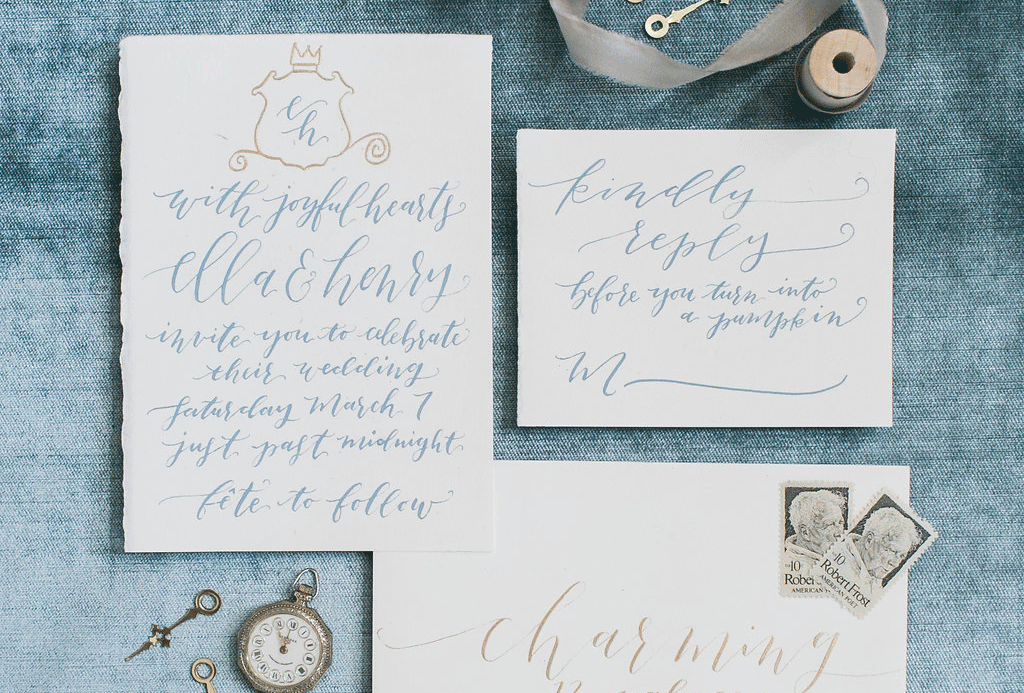 e
h
with joyful hearts
ella & henry
invite you to celebrate
their wedding
saturday march 7
just past midnight
fête to follow
kindly
reply
before you turn into
a pumpkin
M
10
Robe
AMERICAN
10
Robert Frost
AMERICAN POET
charming